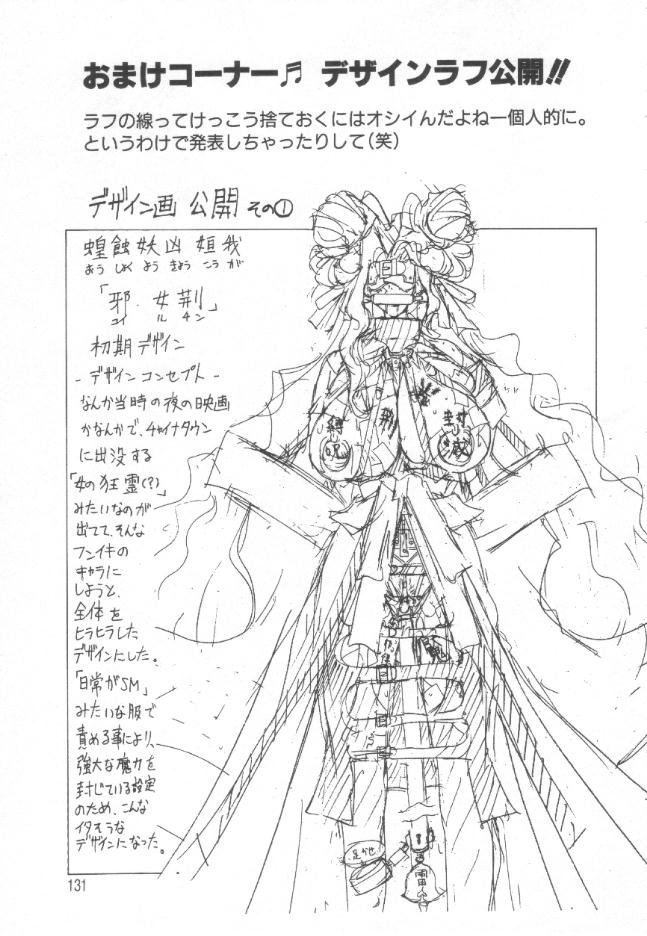 おまけコーナー♬ デザインラフ公開!!
ラフの線ってけっこう捨ておくにはオシイんだよねー個人的に。
というわけで発表しちゃったりして(笑)
デザイン画 公開 その①
蝗蝕妖凶 姮我
おう しょく よう きょう こう が
「邪 女荆」
ユイ ル チン
初期デザイン
- デザインコンセプト -
なんか当時の夜の映画
かなんかで、チャイナタウン
に出没する
「女の狂霊(?)」
みたいなのが
出てて、そんな
フンイキの
キャラに
しようと、
全体を
ヒラヒラした
デザインにした。
「日常がSM」
みたいな服で
責める事により、
強大な魔力を
封じている設定
のため、こんな
イタそうな
デザインになった。
縛
呪
荆
封
足かせ
131